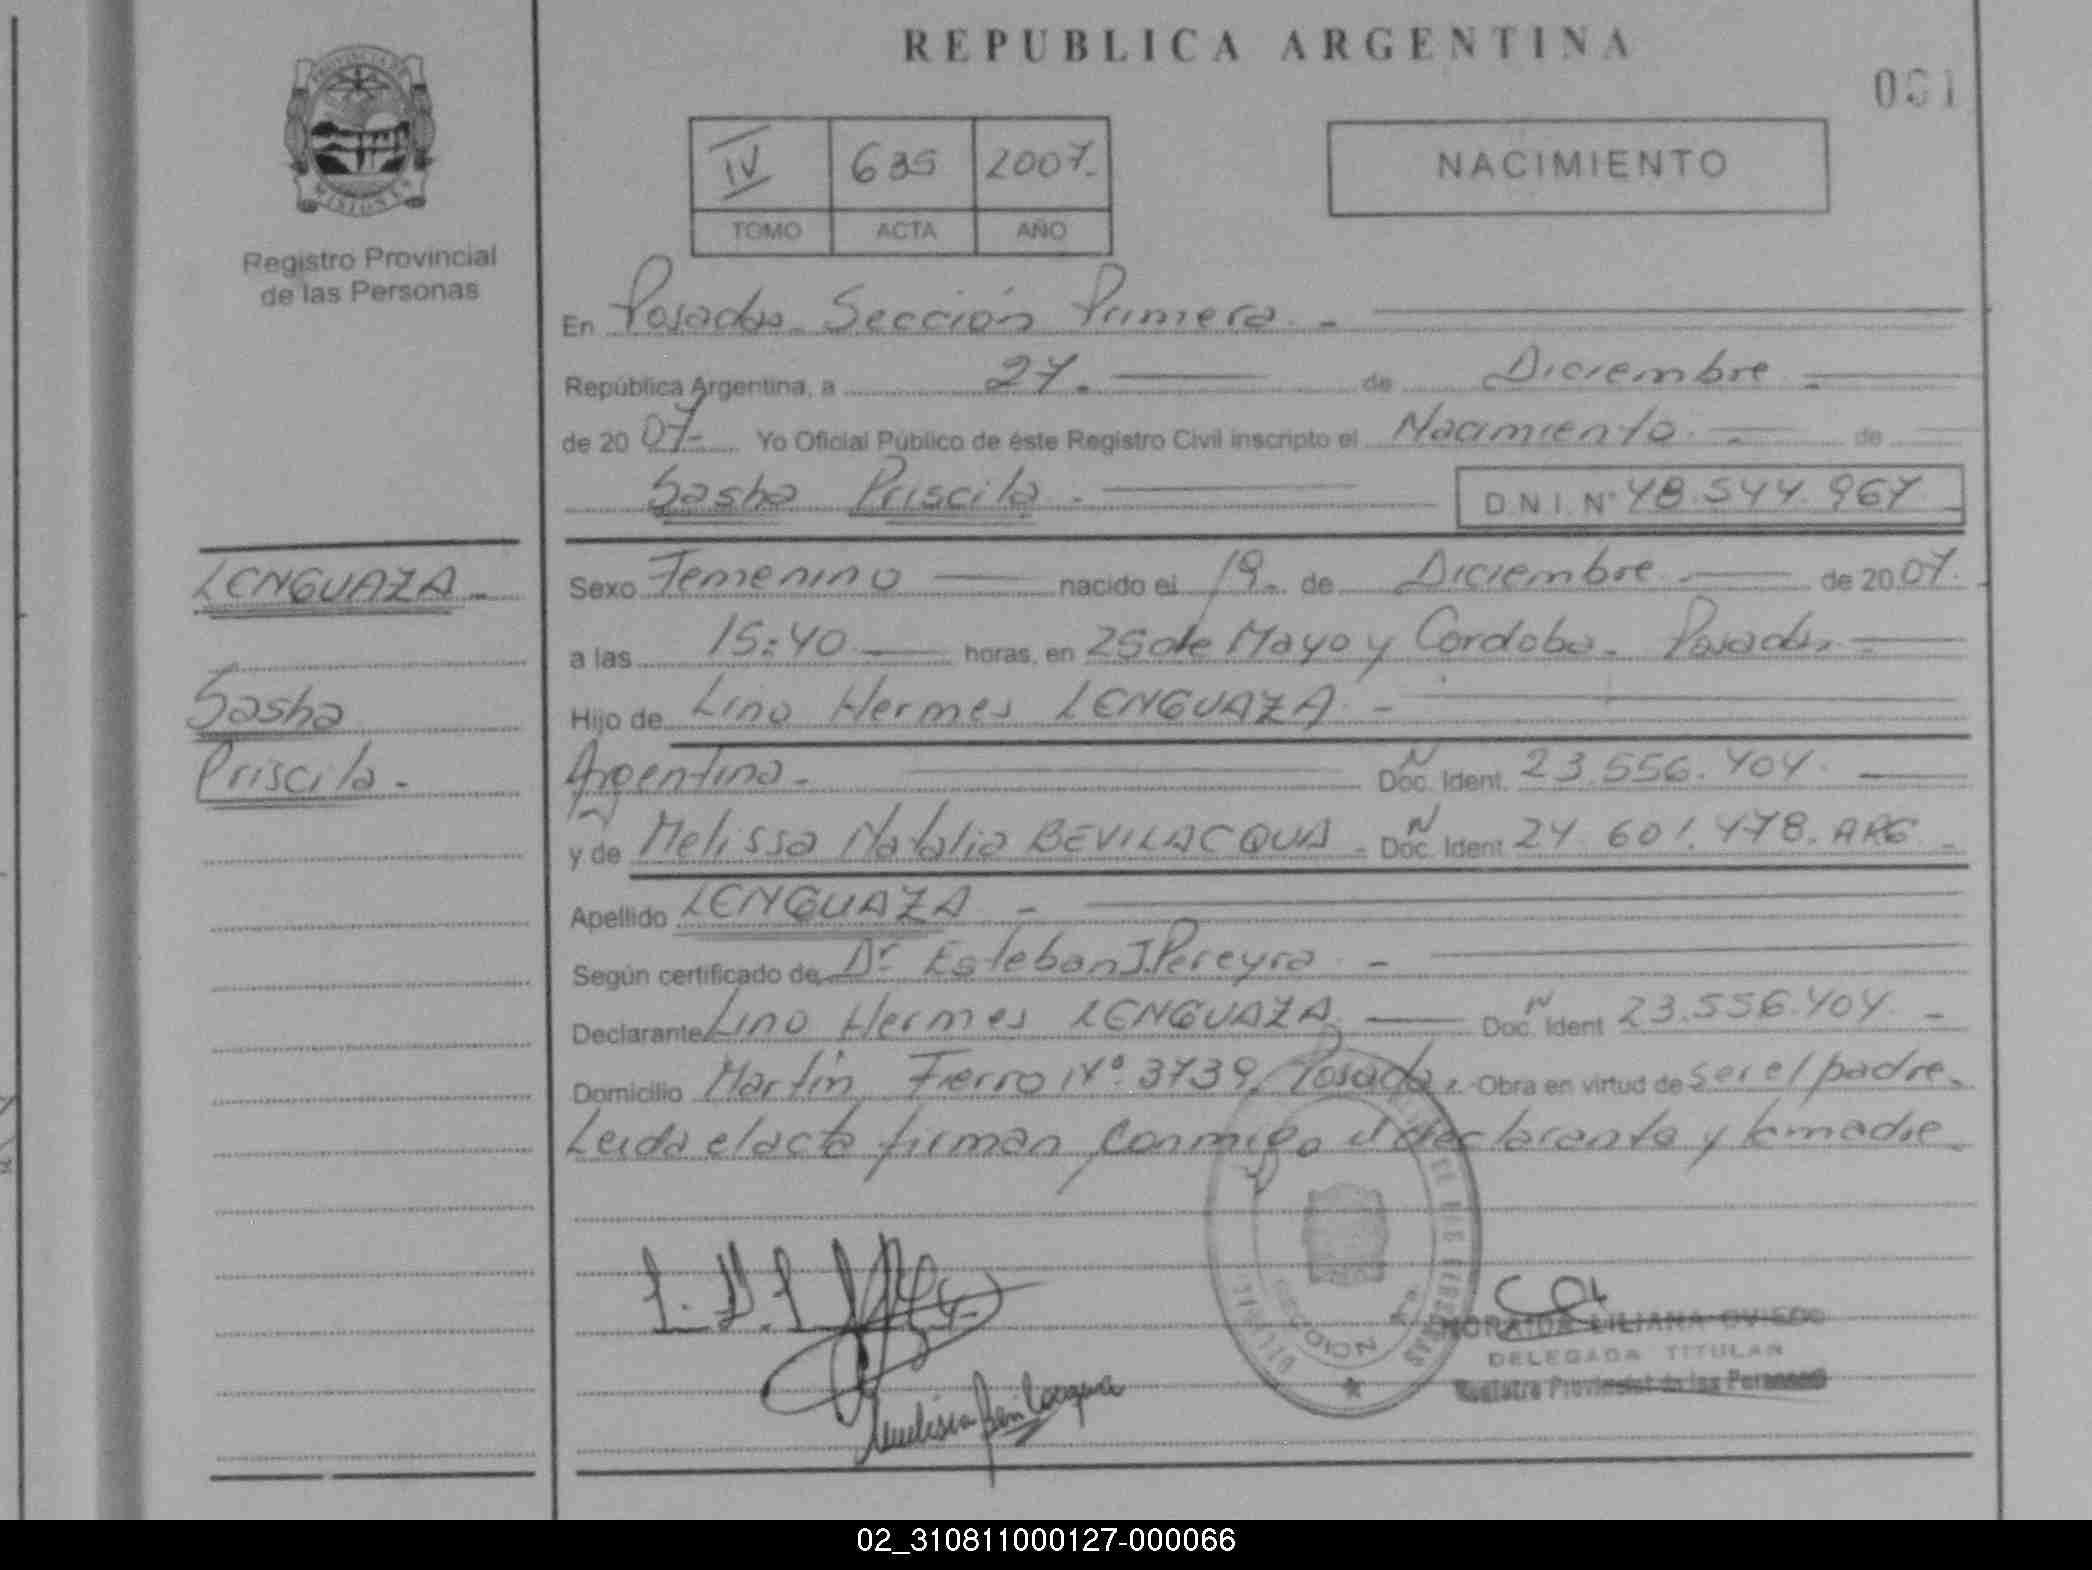 REPUBLICA ARGENTINA
IV 635 2007.
TOMO ACTA AÑO
NACIMIENTO
Registro Provincial
de las Personas
En Posadas Sección Primera.-
República Argentina, a 27. de Diciembre
de 20 07- Yo Oficial Público de éste Registro Civil inscripto el Nacimiento.- de
Sasha Priscila. D.N.I. Nº 48.544.967
LENGUAZA
Sasha
Priscila-
Sexo Femenino nacido el 19. de Diciembre de 20 07.
a las 15:40 horas, en 25 de Mayo y Cordoba. Posadas
Hijo de Lino Hermes LENGUAZA.-
Argentina- N Doc. Ident. 23.556.404.
y de Melissa Natalia BEVILACQUA. N Doc. Ident 24.601.478. ARG
Apellido LENGUAZA -
Según certificado de Dr Esteban J. Pereyra.-
Declarante Lino Hermes LENGUAZA N Doc. Ident 23.556.404. -
Domicilio Martín Fierro Nº 3739, Posadas. Obra en virtud de ser el padre.
Leida el acta firman conmigo el declarante y la madre
SECCION
Melissa Bevilacqua
LILIANA OVIEDO
DELEGADA TITULAR
Registro Provincial de las Personas
02_310811000127-000066